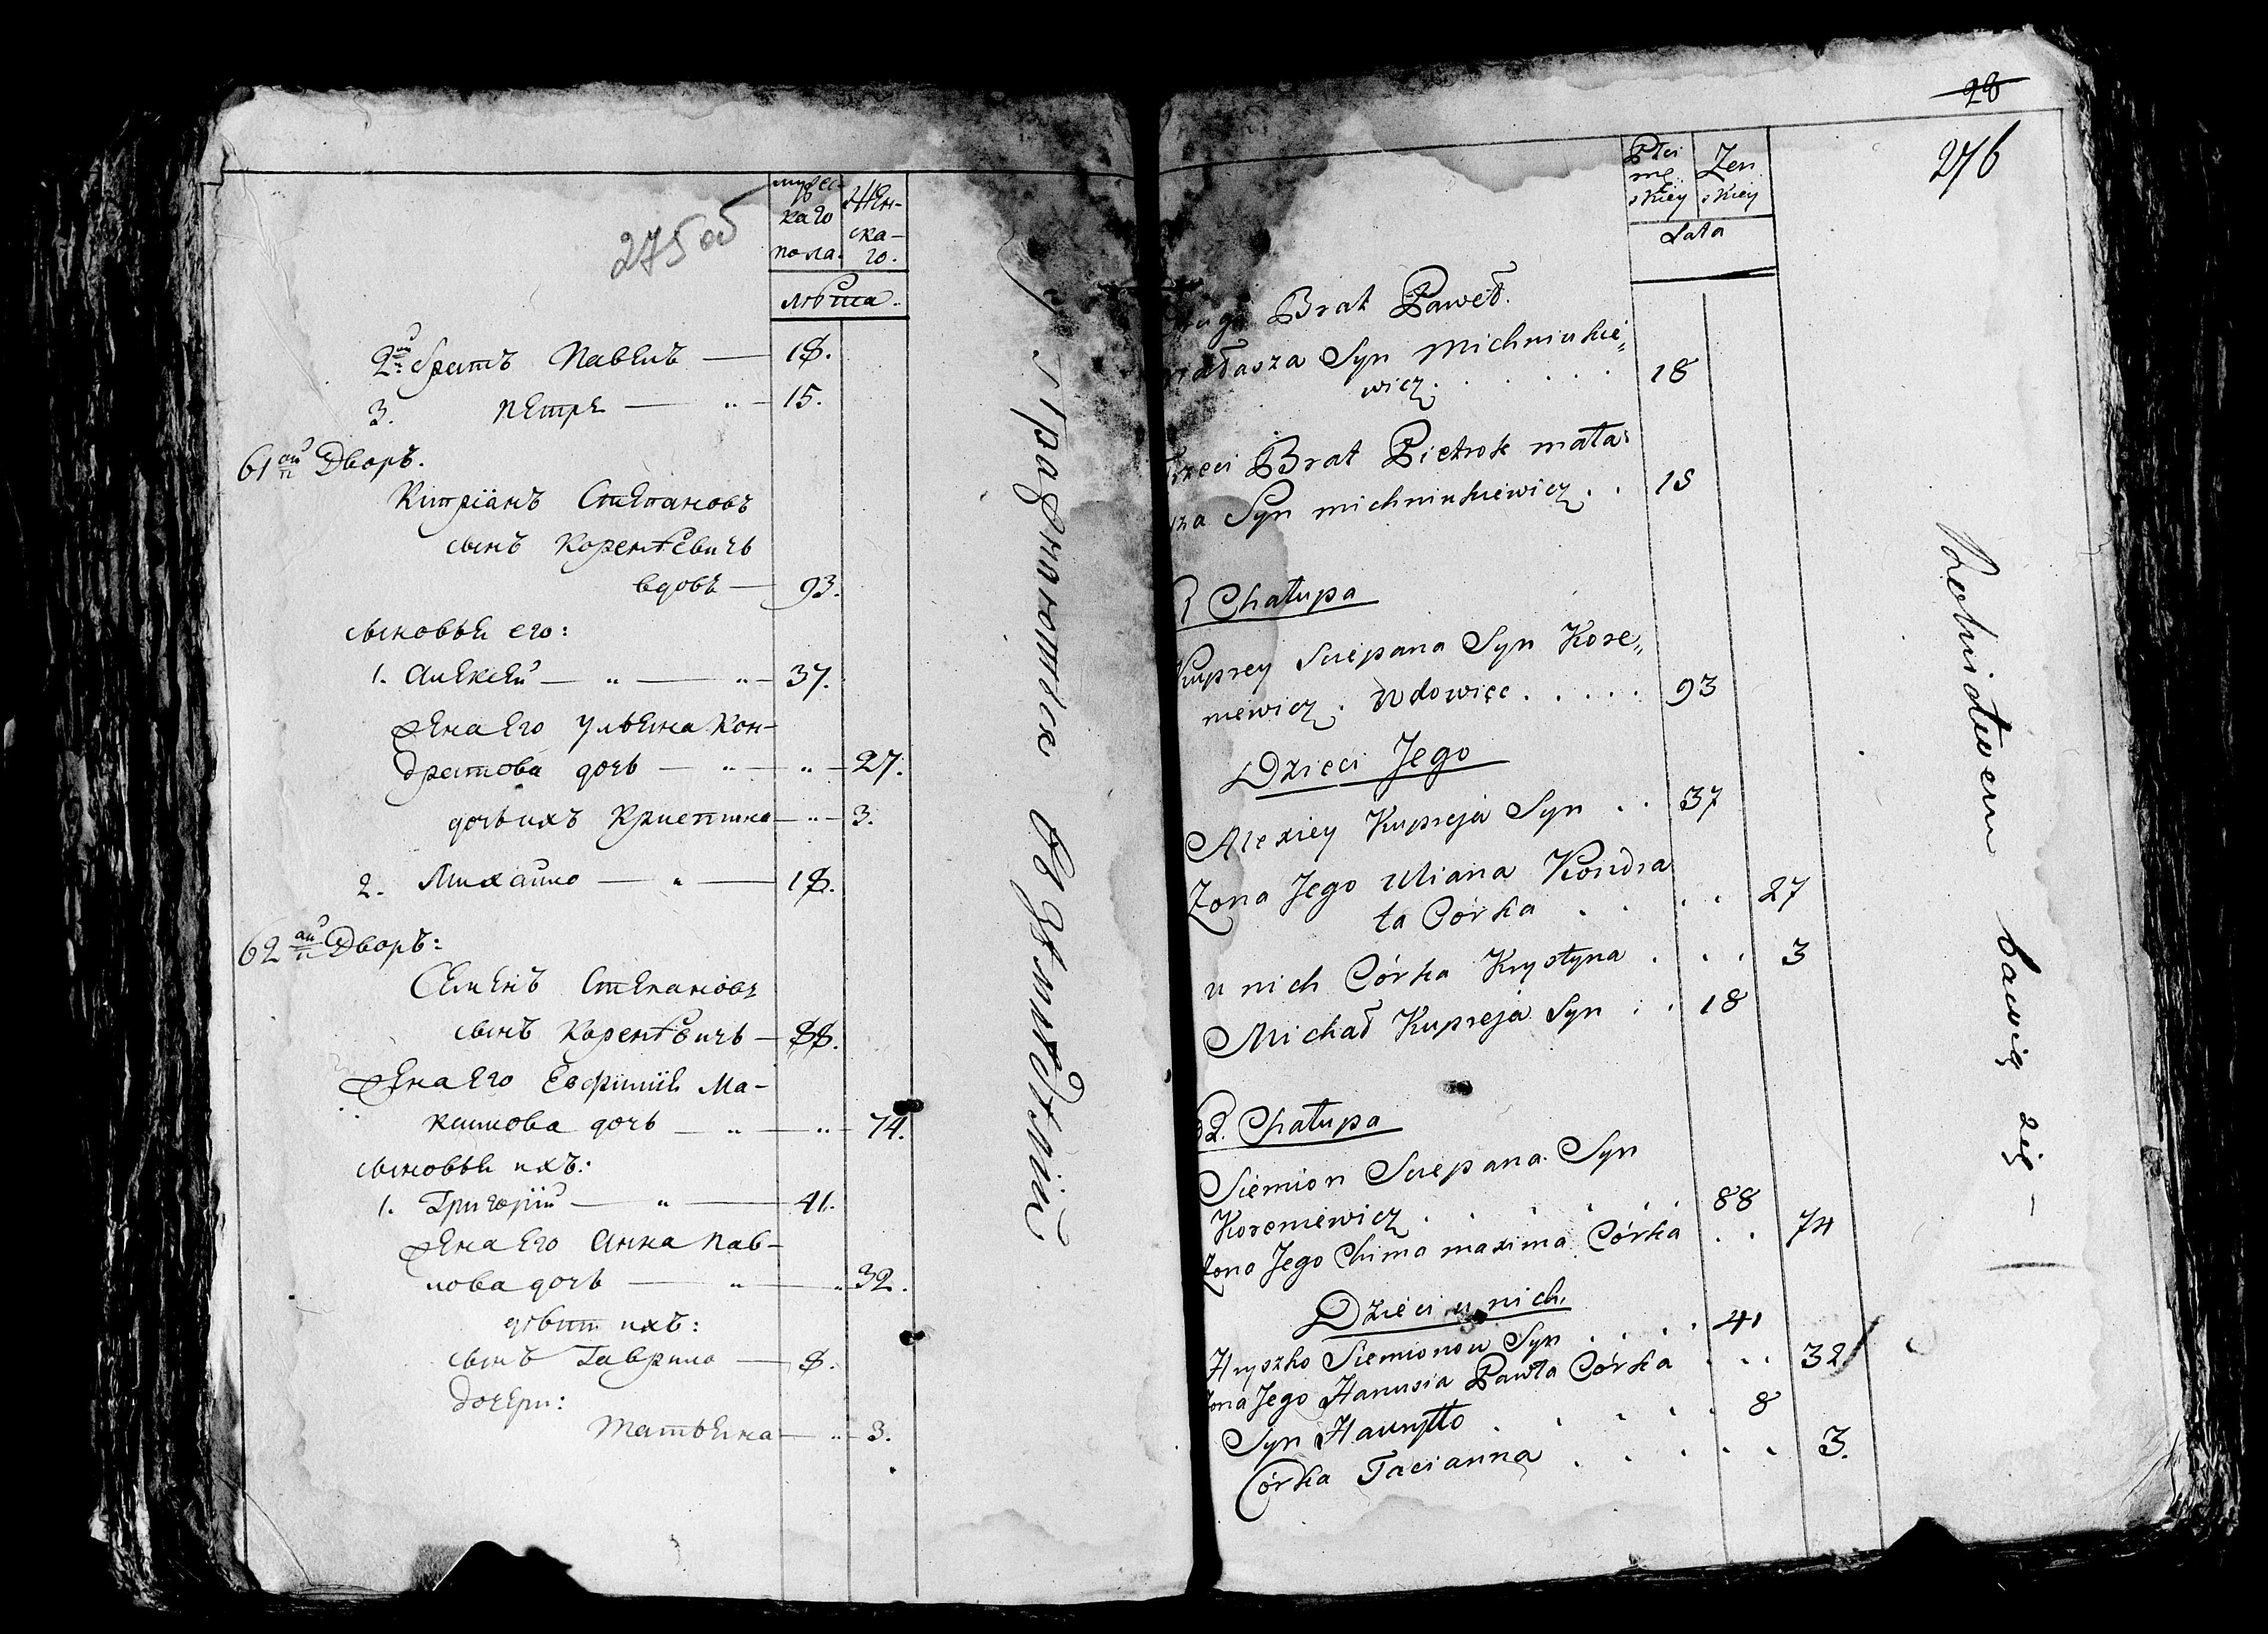 275 об
мужес-
каго
пола.
Жен-
ска-
го.
лѣта.
2й братъ Павелъ — 18.
3. Петръ — " — 15.
61ый Дворъ.
Кипріянъ Степановъ
сынъ Коренѣвичъ
вдовъ — 93.
сыновья его:
1. Алексѣй — " — " — 37.
жена его Ульяна Кон-
дратова дочь — " — " — 27.
дочь ихъ Кристина — " — 3.
2. Михайло — " — 18.
62ой Дворъ:
Семенъ Степановъ
сынъ Коренѣвичъ — 88.
жена его Евфимія Ма-
ксимова дочь — " — " — 74.
сыновья ихъ:
1. Григорій — " — 41.
жена его Анна Пав-
лова дочь — " — " 32.
дѣти ихъ:
сынъ Гаврило — 8.
дочери:
Татьяна — " — 3.
упражняются въ земледѣліи
28
276
Płci
mę
skiey
Żen
skiey
Lata
Brat Paweł.
Syn Michniukie„
wicz . . . . . 18
Brat Pietrok Mata
Syn Michniukiewicz . . 15
Chałupa
Kuprey Sciepana Syn Kore„
niewicz . Wdowiec . . . . . 93
Dzieci Jego
Alexiey Kupreja Syn . . 37
Żona Jego Uliana Kondra
ta Córka . . . . . 27
u nich Córka Krystyna . . . 3
Michał Kupreja Syn . . 18
62. Chałupa
Siemion Sciepana Syn
Koreniewicz . . . . . . 88
Żona Jego Chima Maxima Córka . . 74
Dzieci u nich.
Hryszko Siemionow Syn . . . . 41
Żona Jego Hanusia Pawła Córka . . . 32
Syn Hauryłło . . . . . 8
Córka Tacianna . . . . . 3.
Rolnictwem bawią się —